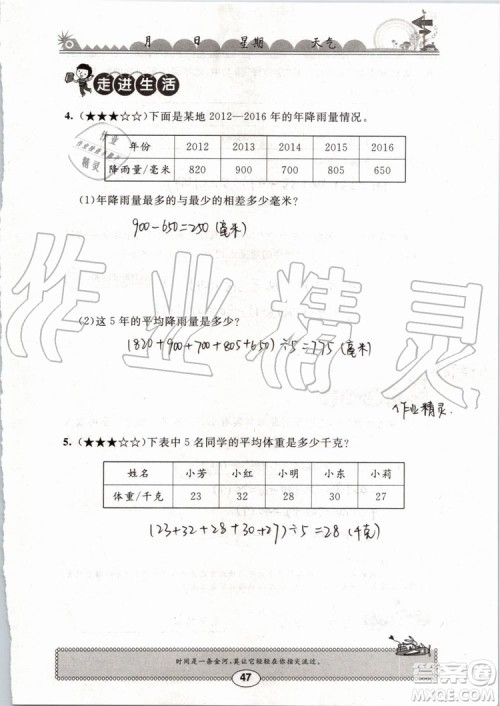 月 日 星期 天气
走进生活
4.（★★★☆☆）下面是某地 2012—2016 年的年降雨量情况。
年份 2012 2013 2014 2015 2016
降雨量/毫米 820 900 700 805 650
(1)年降雨量最多的与最少的相差多少毫米?
900-650=250(毫米)
(2)这 5 年的平均降雨量是多少?
(820+900+700+805+650)÷5=775(毫米)
作业精灵
5.（★★★☆☆）下表中 5 名同学的平均体重是多少千克?
姓名 小芳 小红 小明 小东 小莉
体重/千克 23 32 28 30 27
(23+32+28+30+27)÷5=28(千克)
时间是一条金河,莫让它轻轻在你指尖流过。
47
作业精灵
答案圈
MXQE.COM